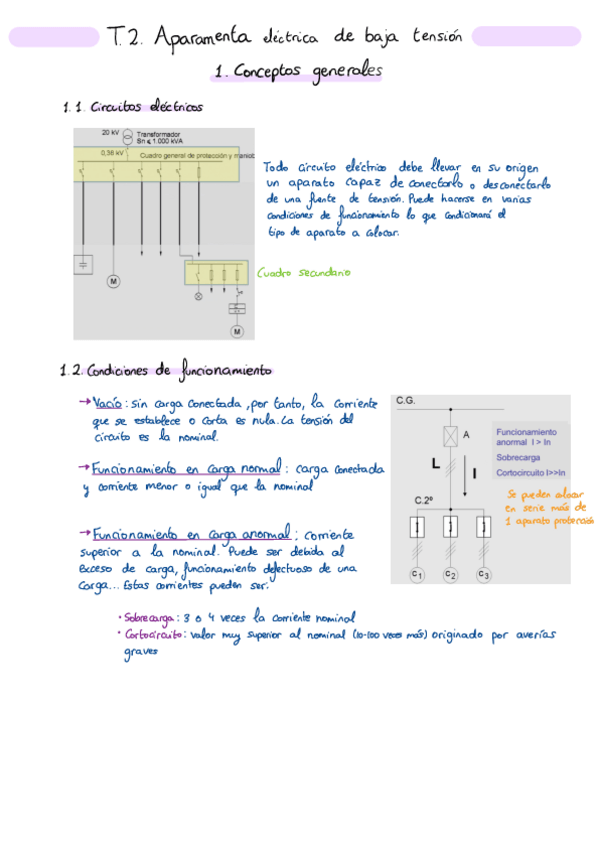 T.2. Aparamenta eléctrica de baja tensión
1. Conceptos generales
1.1. Circuitos eléctricos
20 kV
Transformador
Sn ≤ 1.000 kVA
0,38 kV
Cuadro general de protección y maniob
Todo circuito eléctrico debe llevar en su origen
un aparato capaz de conectarlo o desconectarlo
de una fuente de tensión. Puede hacerse en varias
condiciones de funcionamiento lo que condicionará el
tipo de aparato a colocar.
Cuadro secundario
M
M
1.2. Condiciones de funcionamiento
→ Vacío: sin carga conectada, por tanto, la corriente
que se establece o corta es nula. La tensión del
circuito es la nominal.
→ Funcionamiento en carga normal: carga conectada
y corriente menor o igual que la nominal
→ Funcionamiento en carga anormal: corriente
superior a la nominal. Puede ser debida al
exceso de carga, funcionamiento defectuoso de una
carga... Estas corrientes pueden ser:
• Sobrecarga: 3 o 4 veces la corriente nominal
• Cortocircuito: valor muy superior al nominal (10-100 veces más) originado por averías
graves
C.G.
A
L
I
C.2º
C1
C2
C3
Funcionamiento
anormal I > In
Sobrecarga
Cortocircuito I>>In
Se pueden colocar
en serie más de
1 aparato protección